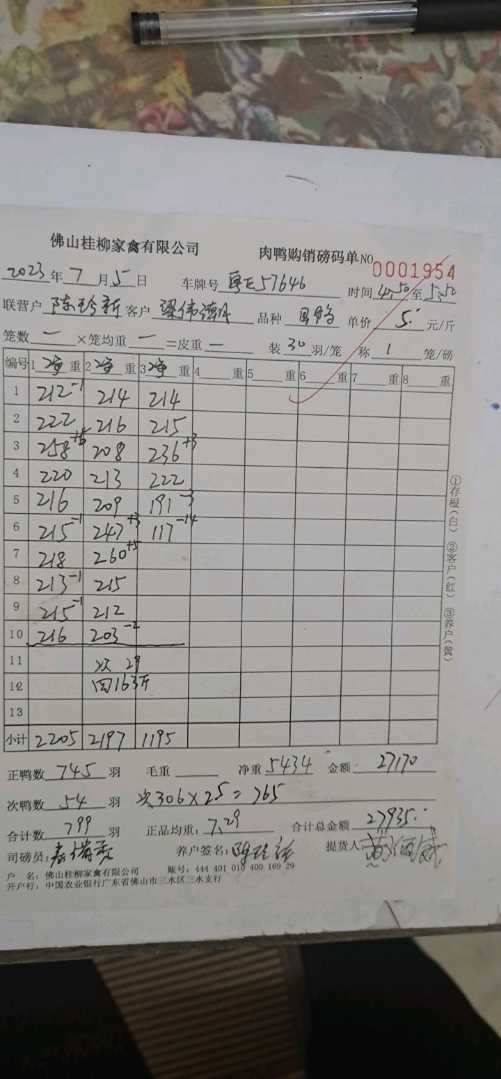 佛山桂柳家禽有限公司 肉鸭购销磅码单 NO 0001954
2023年7月5日 车牌号 粤E57646 时间 4:50至5:50
联营户 陈玲新 客户 梁伟 品种 单价 5. 元/斤
笼数 一 ×笼均重 一 =皮重 一 装30羽/笼 称1笼/磅
编号 1净重 2净重 3净重 4 重 5 重 6 重 7 重 8 重
1 212-1 214 214
2 222 216 215
3 258+5 208 236+3
4 220 213 222
5 216 209 191-3
6 215-1 247+3 117-14
7 218 260+5
8 213-1 215
9 215-1 212
10 216 203-2
11 次 29
12 四163斤
13
小计 2205 2197 1195
正鸭数 745 羽 毛重 净重 5434 金额 27170
次鸭数 54 羽 次306×2.5=765
合计数 799 羽 正品均重: 7.29 合计总金额 27935.
司磅员: 养户签名: 陈玲新 提货人
户 名: 佛山桂柳家禽有限公司 账号: 444 401 010 400 169 29
开户行: 中国农业银行广东省佛山市三水区三水支行
①存根(白) ②客户(红) ③养户(黄)